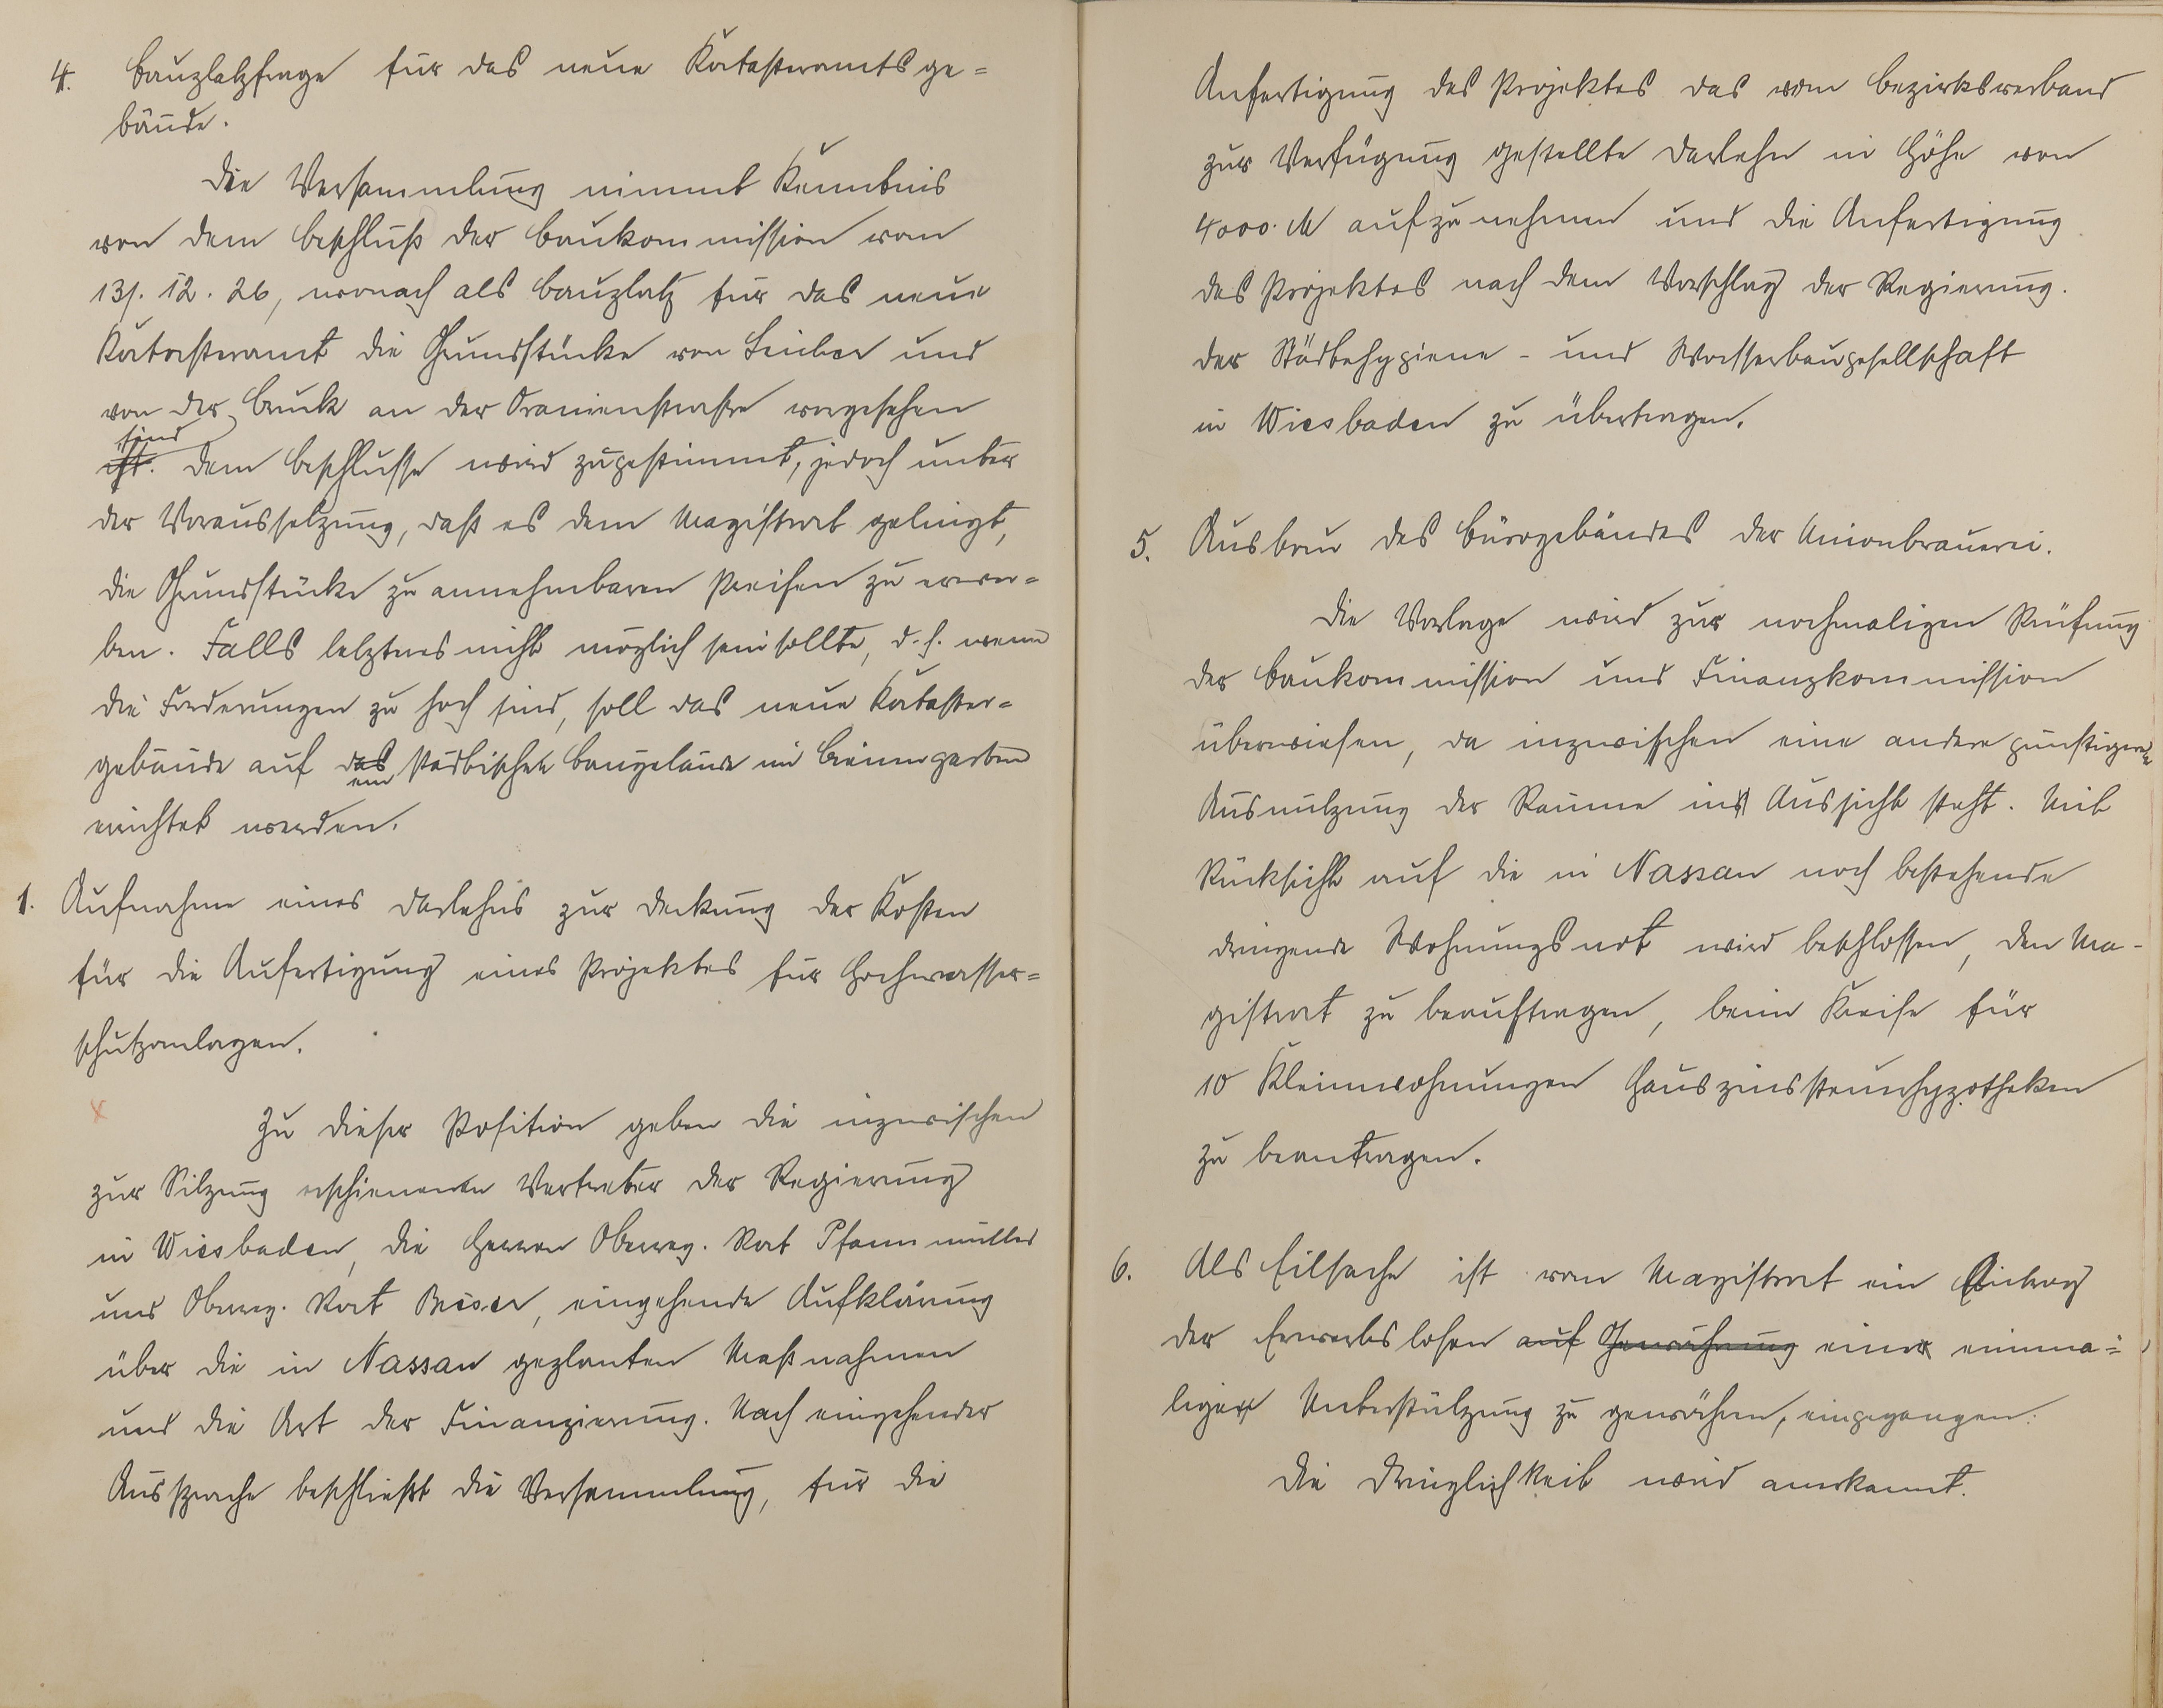 4. Bauplatzfrage für das neue Katasteramtsge=
bäude.
Die Versammlung nimmt Kenntnis
von dem Beschluß der Baukommission vom
13. 12. 26, wonach als Bauplatz für das neue
Katasteramt die Grundstücke von und
von der Bruck an der Oranienstraße vorgesehen
sind
ist. Dem Beschlusse wird zugestimmt, jedoch unter
der Voraussetzung, daß es dem Magistrat gelingt,
die Grundstücke zu annehmbaren Preisen zu erwer=
ben. Falls letzteres nicht möglich sein sollte, d.h. wenn
die Forderungen zu hoch sind, soll das neue Kataster=
gebäude auf das städtische Baugelände im
ein
errichtet werden.
1. Aufnahme eines Darlehns zur Deckung der Kosten
für die Anfertigung eines Projektes für Hochwasser=
schutzanlagen.
Zu dieser Position geben die inzwischen
zur Sitzung erschienenen Vertreter der Regierung
in Wiesbaden, die Herren Oberreg. Rat Pfannmüller
und Oberreg. Rat, eingehende Aufklärung
über die in Nassau geplanten Maßnahmen
und die Art der Finanzierung. Nach eingehender
Aussprache beschließt die Versammlung, für die
Anfertigung des Projektes das vom Bezirksverband
zur Verfügung gestellte Darlehn in Höhe von
4000. M aufzunehmen und die Anfertigung
des Projektes nach dem Vorschlag der Regierung.
der Städtehygiene- und Wasserbaugesellschaft
in Wiesbaden zu übertragen.
5. Ausbau des Bürogebäudes der Unionbrauerei.
Die Vorlage wird zur nochmaligen Prüfung
der Baukommission und Finanzkommission
überwiesen, da inzwischen eine andere günstigere
Ausnutzung der Räume in Aussicht steht. Mit
Rücksicht auf die in Nassau noch bestehende
dringende Wohnungsnot wird beschlossen, den Ma-
gistrat zu beauftragen, beim Kreise für
10 Kleinwohnungen Hauszinssteuerhypotheken
zu beantragen.
6. Als Eilsache ist vom Magistrat ein Antrag
der Erwerbslosen auf Gewährung einer einma=
liger Unterstützung zu gewähren, eingegangen.
Die Dringlichkeit wird anerkannt.